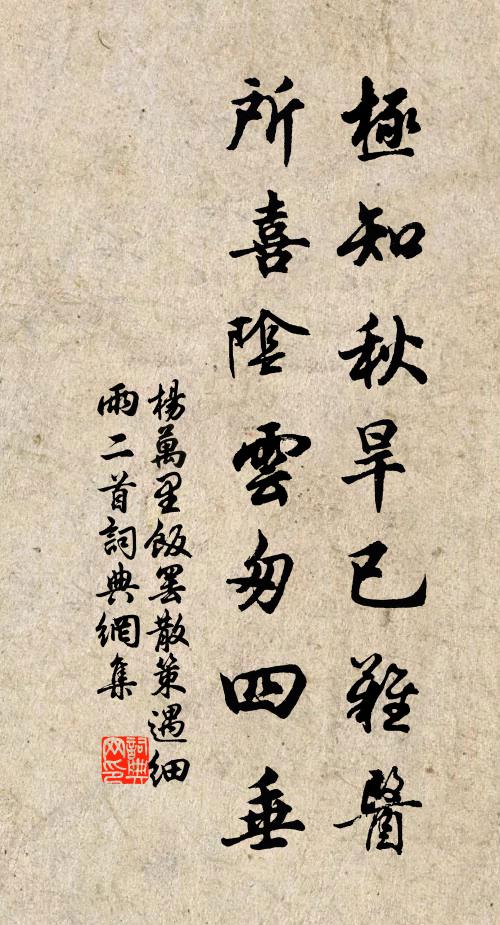 極知秋旱已難醫
所喜陰雲匆四垂
楊萬里飯罢散策遇细
雨二首詞典網集
詞典
网印